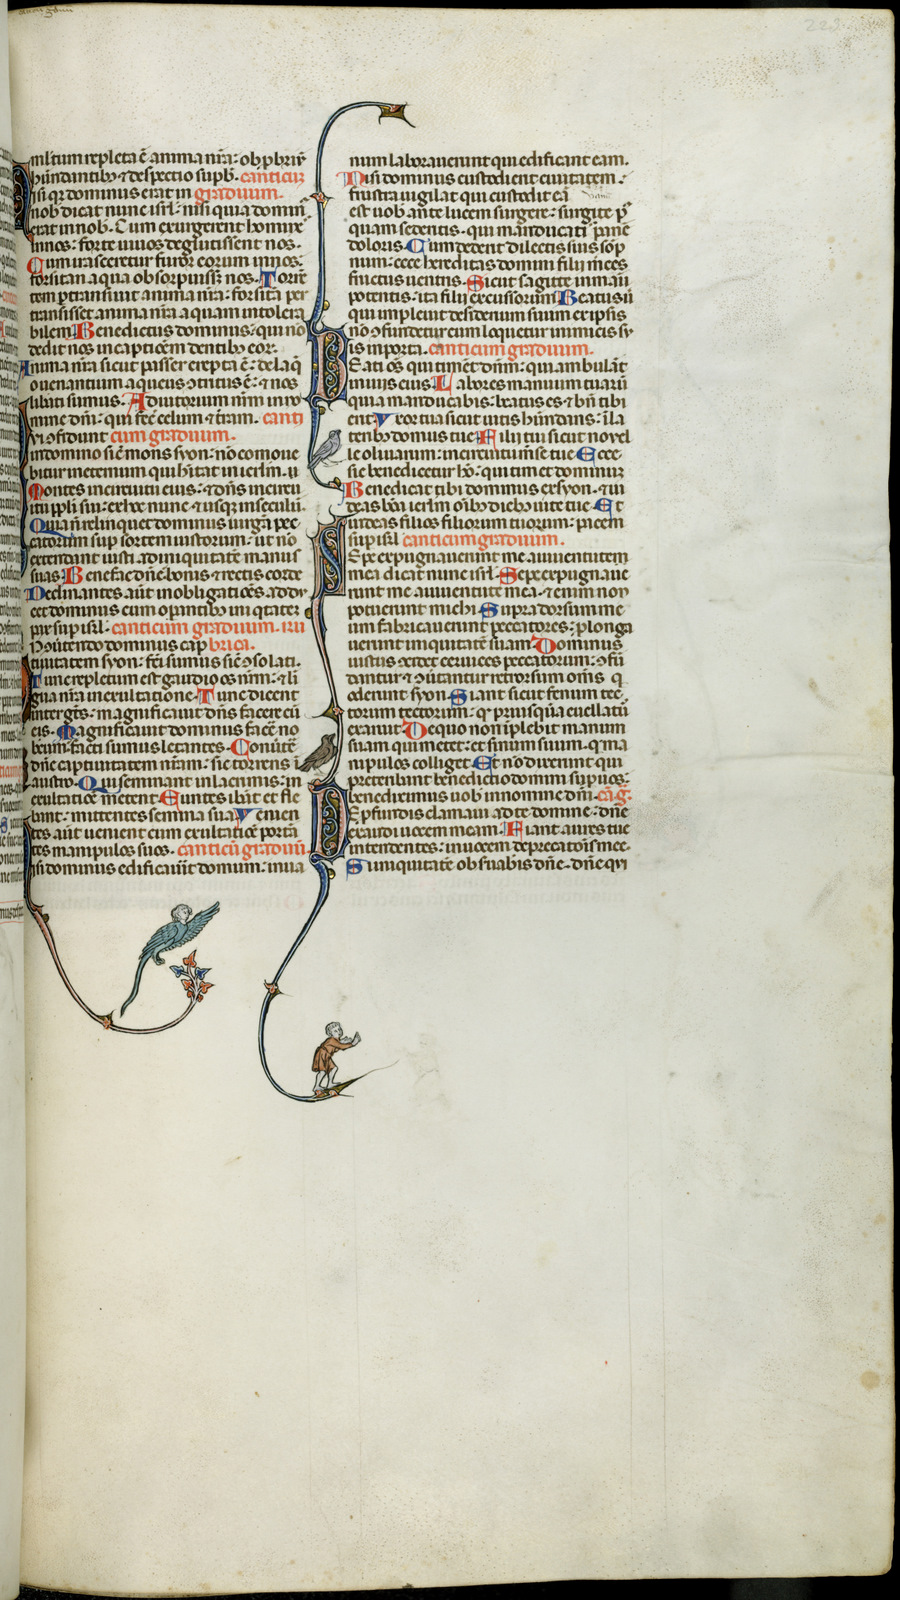 multum repleta ē anima nr̄a: obp̄briū
hūndantibꝫ ⁊ despectio supb̄. canticū
isi qꝛ dominus erat in graduum.
nob dicat nunc isrl̄: nisi quia domin̄
erat in nob. Cum exurgerent homīes
in nos: forte uiuos deglutissent nos.
Cum irasceretur furor eorum in nos:
forsitan aqua obsorpuisꝫ nos. Torrē
tem ꝑtransiuit anima nr̄a: forsitā per
transisset anima nr̄a aquam intolera
bilem. Benedictus dominus: qui nō
dedit nos in captiōem dentibꝫ eor.
Anima nr̄a sicut passer erepta ē: de laq̄
o uenantium. Laqueus ꝯtritus ē: ⁊ nos
libati sumus. Adiutorium nr̄m in no
mine dn̄i: qui fec̄ celum ⁊ t̄ram. canti
ui ꝯfidunt cum graduum.
in domino sic̄ mons syon: nō cōmoue
bitur in eternum qui hītat in ierlm̄. 
Montes in circuitu eius: ⁊ dn̄s in circui
tu pp̄li sui: ex hoc nunc ⁊ usqꝫ in seculū.
Quia n̄ relinquet dominus uirgā pec
catorum sup sortem iustorum: ut nō
extendant iusti ad iniquitatē manus
suas. Benefac dn̄e bonis ⁊ rectis corde
Declinantes aūt in obligatiōes addu
cet dominus cum opantibꝫ iniqtatē:
pax sup isrl̄. canticum graduum.
N ꝯuertendo dominus cap
tiuitatem syon: fc̄i sumus sic̄ ꝯsolati.
Tunc repletum est gaudio os nr̄m: ⁊ lī
gua nr̄a in exultatione. Tunc dicent
inter gn̄tes: magnificauit dn̄s facere cū
eis. Magnificauit dominus facē no
bicum: facti sumus letantes. Conuerte
dn̄e captiuitatem nr̄am: sic torrens ī
austro. Qui seminant in lacrimis: in
exultatiōe metent. Euntes ibāt et fle
bant: mittentes semina sua. Venien
tes aūt uenient cum exultatiōe portā
tes manipulos suos. canticū graduū
isi dominus edificauit domum: in ua
num laborauerunt qui edificant eam.
Nisi dominus custodierit ciuitatem:
frustra uigilat qui custodit eā
est uob ante lucem surgere: surgite p̄
quam sederitis. qui manducatis panē
doloris. Cum dederit dilectis suis sop
num: ecce hereditas domini filii mces
fructus uentris. Sicut sagitte in manu
potentis: ita filii excussorum. Beatus ui
qui impleuit desiderium suum ex ipsis
nō ꝯfundetur cum loquetur inimicis su
is in porta. canticum graduum.
Eati oēs qui timent dn̄m: qui ambulāt
in uiis eius. Labores manuum tuarū
quia manducabis: beatus es ⁊ bn̄ tibi
erit. Vxor tua sicut uitis hūndans: ī la
teribꝫ domus tue. Filii tui sicut nouel
le oliuarum: in circuitu mēse tue. Ecce
sic benedicetur hō: qui timet dominū
Benedicat tibi dominus ex syon: ⁊ ui
deas bōa ierlm̄ oībꝫ diebꝫ uite tue. Et
uideas filios filiorum tuorum: pacem
sup isrl̄. canticum graduum.
Epe expugnauerunt me a iuuentute m
mea dicat nunc isrl̄. Sepe expugnaue
runt me a iuuentute mea: ⁊enim non
potuerunt michi. Supra dorsum me
um fabricauerunt peccatores: ꝓlonga
uerunt iniquitatē suam. Dominus
iustus ꝯcidet ceruices peccatorum: ꝯfū
dantur ⁊ ꝯuertantur retrorsum om̄s q̄
oderunt syon. Fiant sicut fenum tec
torum tectorum: qd̄ priusquā euellatū
exaruit. De quo non īplebit manum
suam qui metet: et sinum suum. q̄ ma
nipulos colliget. Et nō dixerunt qui
preteribant benedictio domini sup uos:
benediximus uob in nomine dn̄i. cā. g̅.
E ꝓfundis clamaui ad te domine: dn̄e
exaudi uocem meam. Fiant aures tue
intendentes: in uocem deprecatōis mee
Si iniquitates obs̄uabis dn̄e. dn̄e qͥ